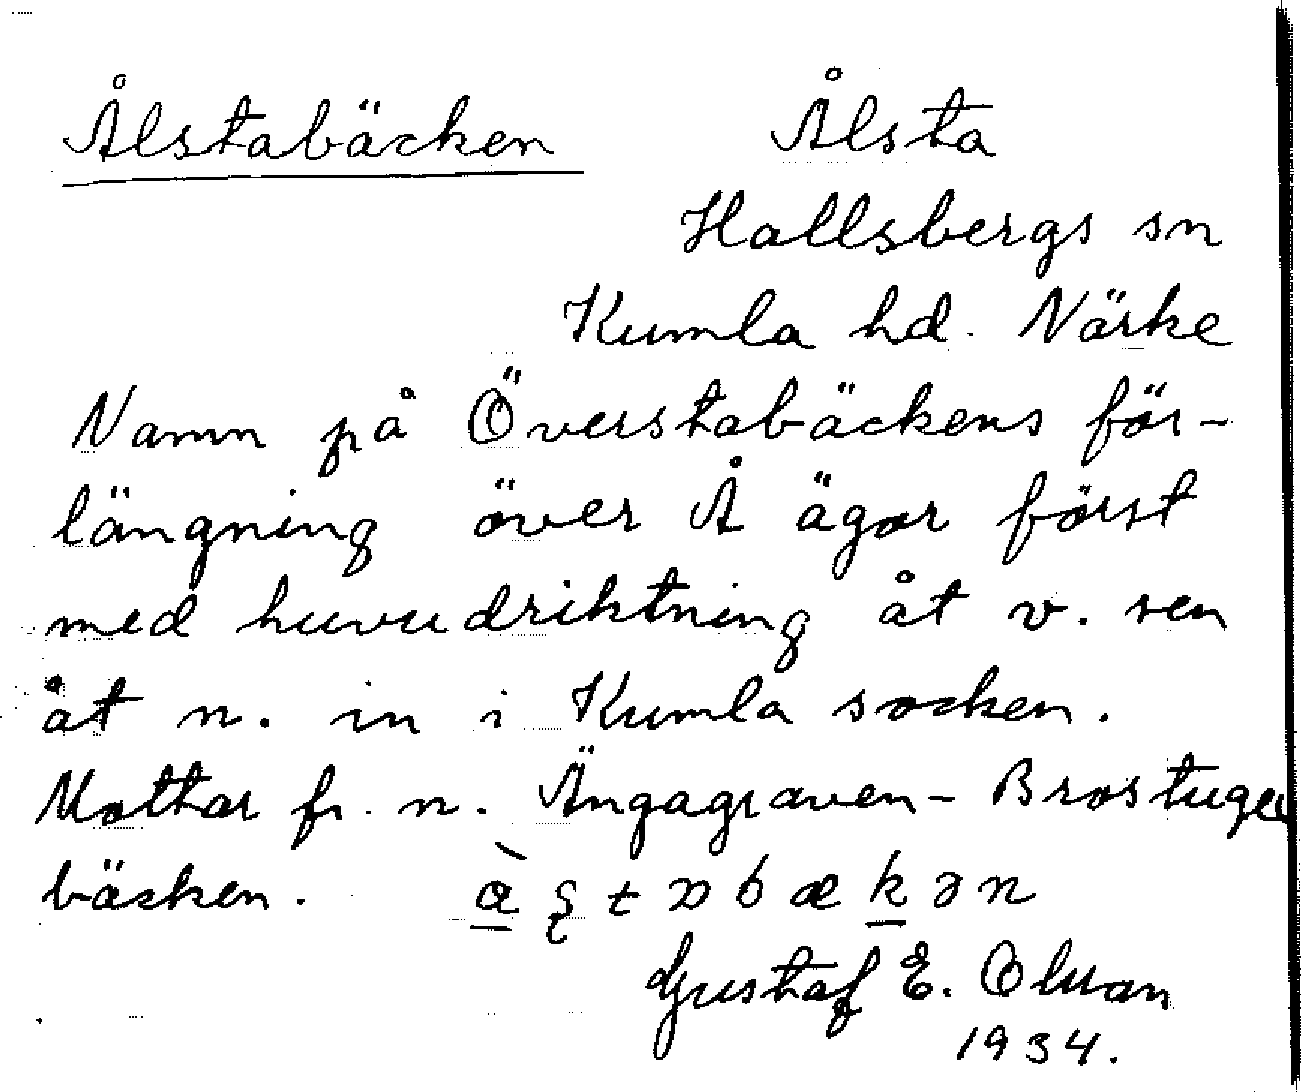 Ålstabäcken Ålsta
Hallsbergs sn
Kumla hd. Närke
Namn på Överstabäckens för-
längning över Å ägor först
med huvudriktning åt v. sen
åt n. in i Kumla socken.
Mottar fr. n. Ängagraven- Brostuge
bäcken.
Gustaf E. Olsson
1934.